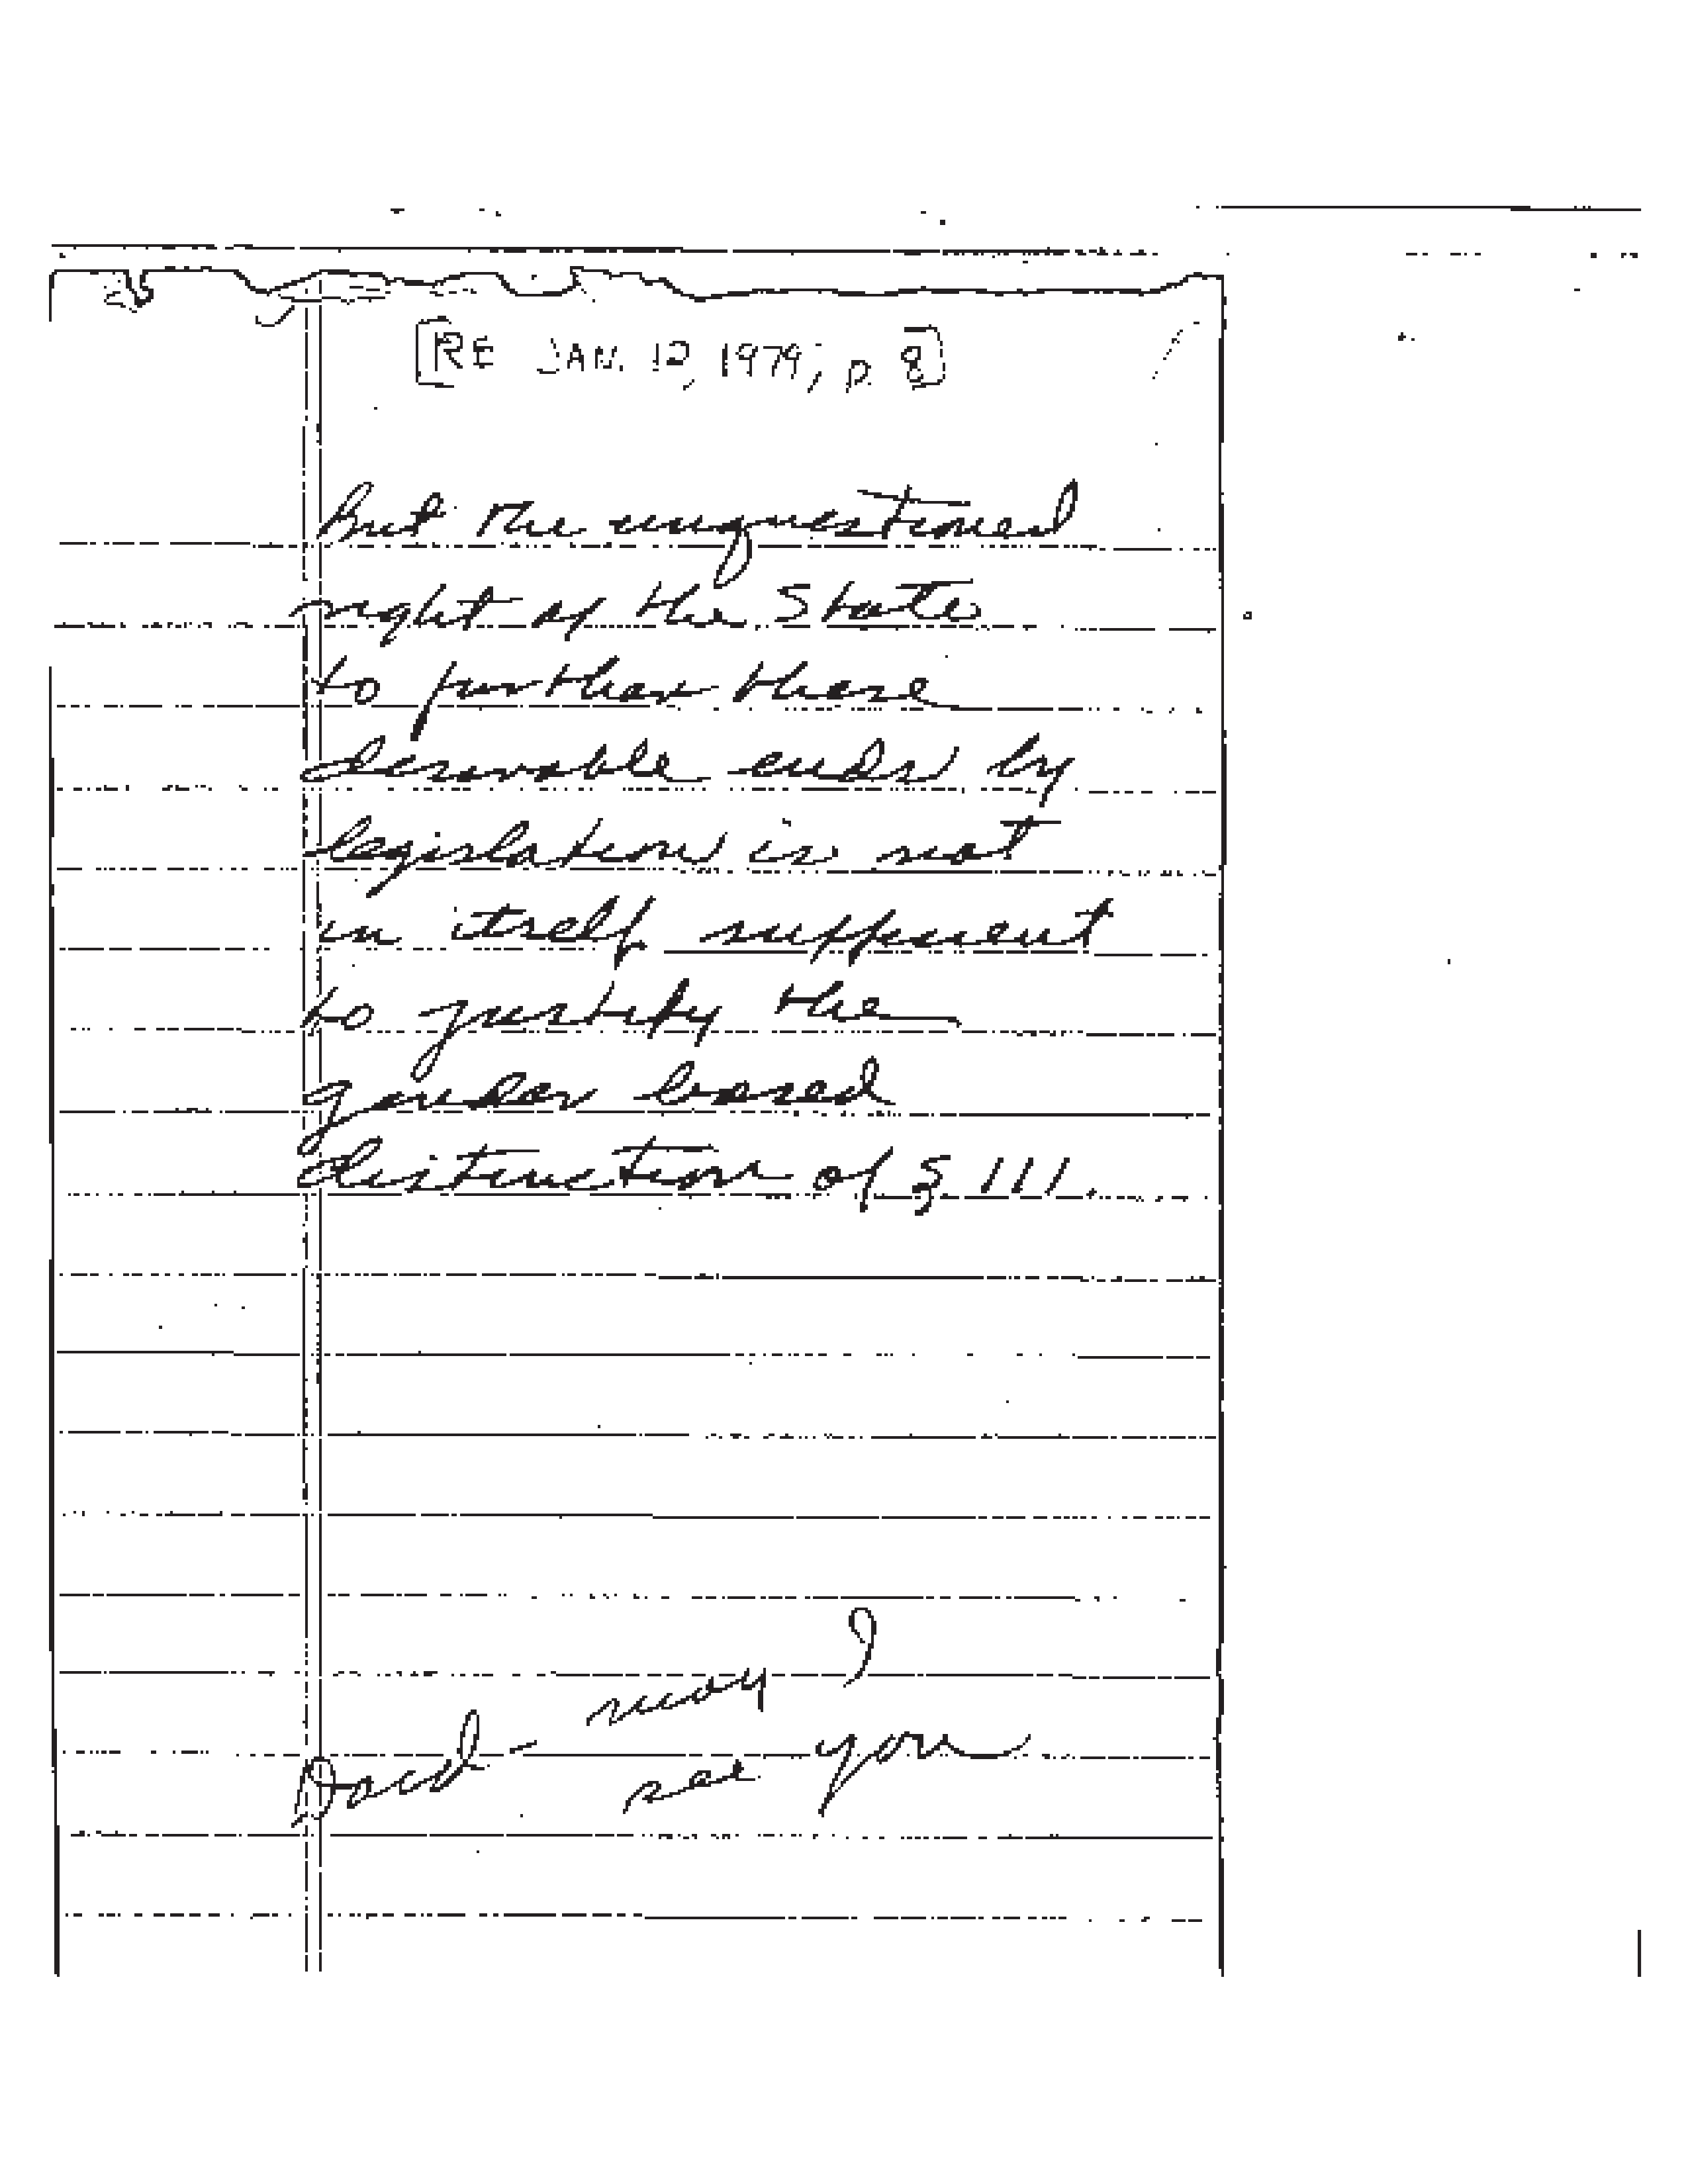 [RE JAN. 12, 1979; p. 8]
But the unquestioned
right of the State
to further these
desirable ends by
legislation is not
in itself sufficient
to justify the
gender based
distinction of § 111.
David - may I
see you